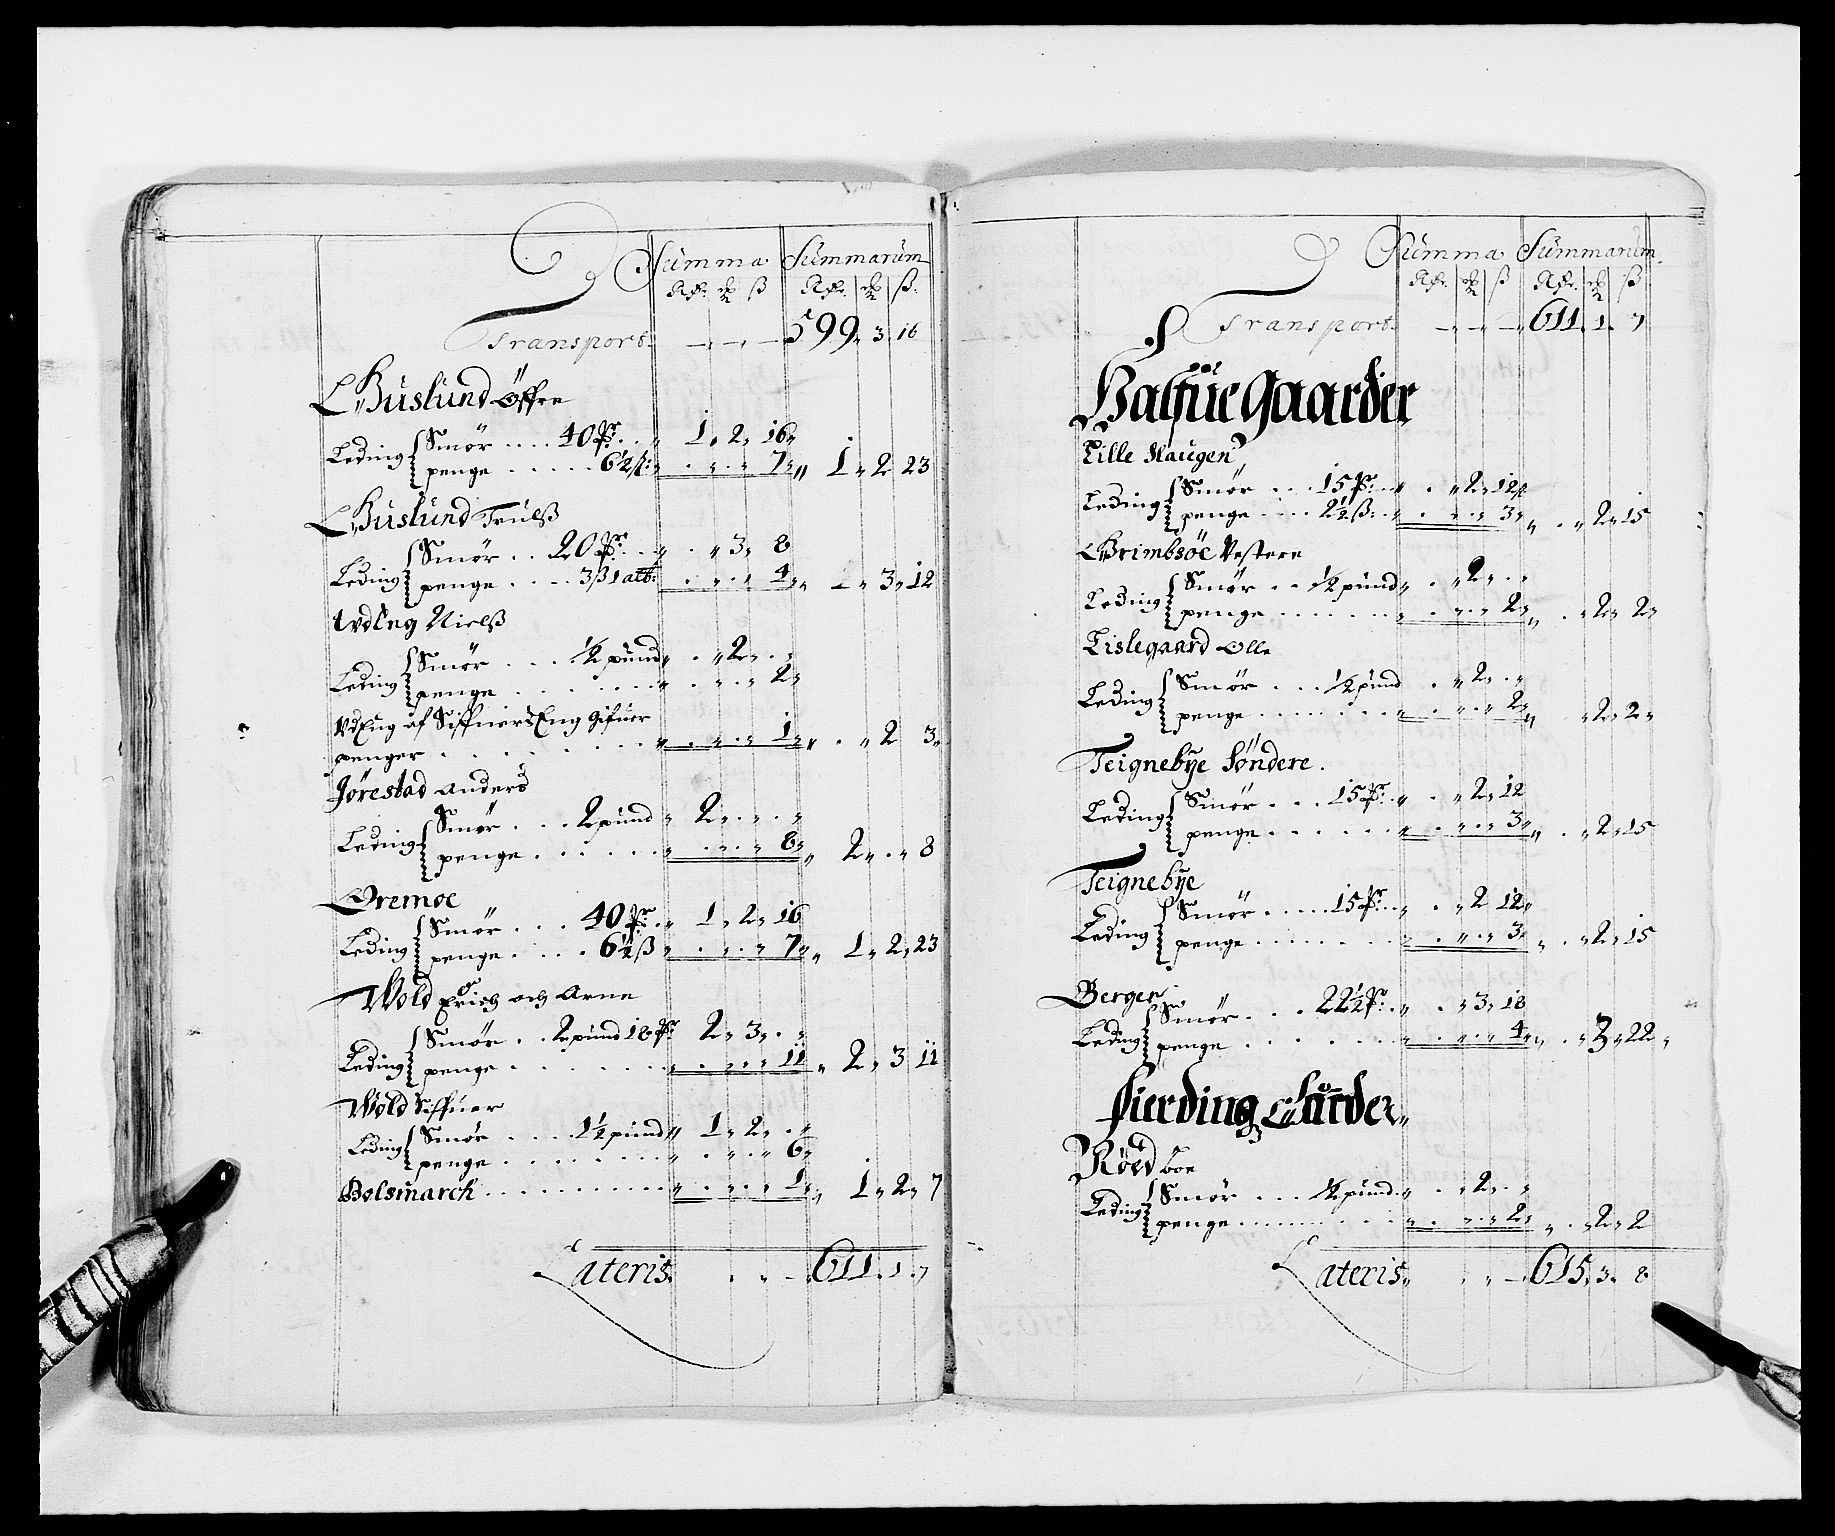 Summa Summarum
Rdr. ß Rdr. ß
Transport 599 3 16
Buslund Öffre
Leding Smør .... 40 1 2 16
penge ..... 6½ ß 7 1 2 23
Buslund Trulß
Leding Smør .. 20 3 8
penge .... 3ß 1 alb: 4 3 12
Udeng Nielß
Leding Smør ... ½ pund 2
penge ....... 2
VdEng af Siffuers Eng gifuer
penger ....... 1 2 3
Jørestad Anders
Leding Smør ... 2 pund 2
penge ...... 8 2 8
Oremoe
Leding Smør ... 40 1 2 16
penge .... 6½ ß 7 1 2 23
Wold Erich och Arne
Leding Smør .. 2 pund 18 2 3
penge ....... 11 2 3 11
Wold Siffuer
Leding Smør .... 1½ pund 1 2
penge ....... 6
Bolsmarck .......... 1 1 2 7
Lateris 611 1 7
Summa Summarum
Rdr. ß Rdr. ß
Transport 611 1 7
Halfue Gaarder
Lille Haugen
Leding Smør ... 15 2 12
penge .... 2½ ß: 3 2 15
Grimbsøe Vestere
Leding Smør .. ½ pund 2
penge ...... 2 2 2
Lislegaard Olle
Leding Smør ... ½ pund 2
penge ....... 2 2 2
Teignebye Söndere.
Leding Smør ... 15 2 12
penge ...... 3 2 15
Teignebye
Leding Smør ..... 15 2 12
penge ....... 3 2 15
Bergen
Leding Smør ... 22½ 3 18
penge ...... 4 3 22
Fierding Gaarder
Röed Boe
Leding Smør ... ½ pund 2
penge ......... 2 2 2
Lateris 615 3 8